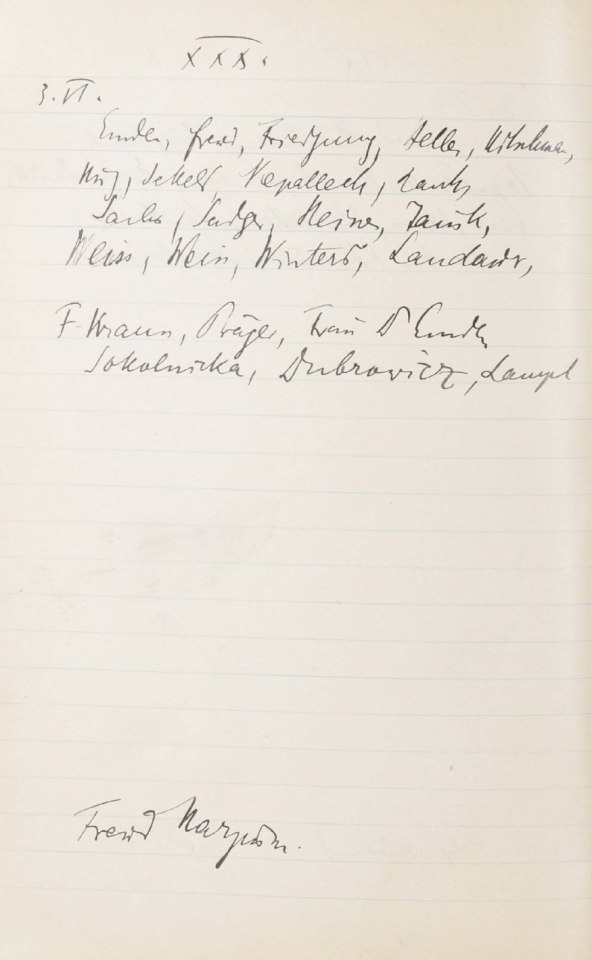 XXX.
3. VI.
Emden, Freud, Friedjung, Heller, Hitschman,
Sekeld, Nepalleck, Rank,
Sachs, Sadger, Steiner, Tausk,
Weiss, Wein, Winterst, Landauer,
F. Kraus, Präger, Frau Dr Emden
Sokolnicka, Dubrowicz, Lampl
Freud Narzissm.